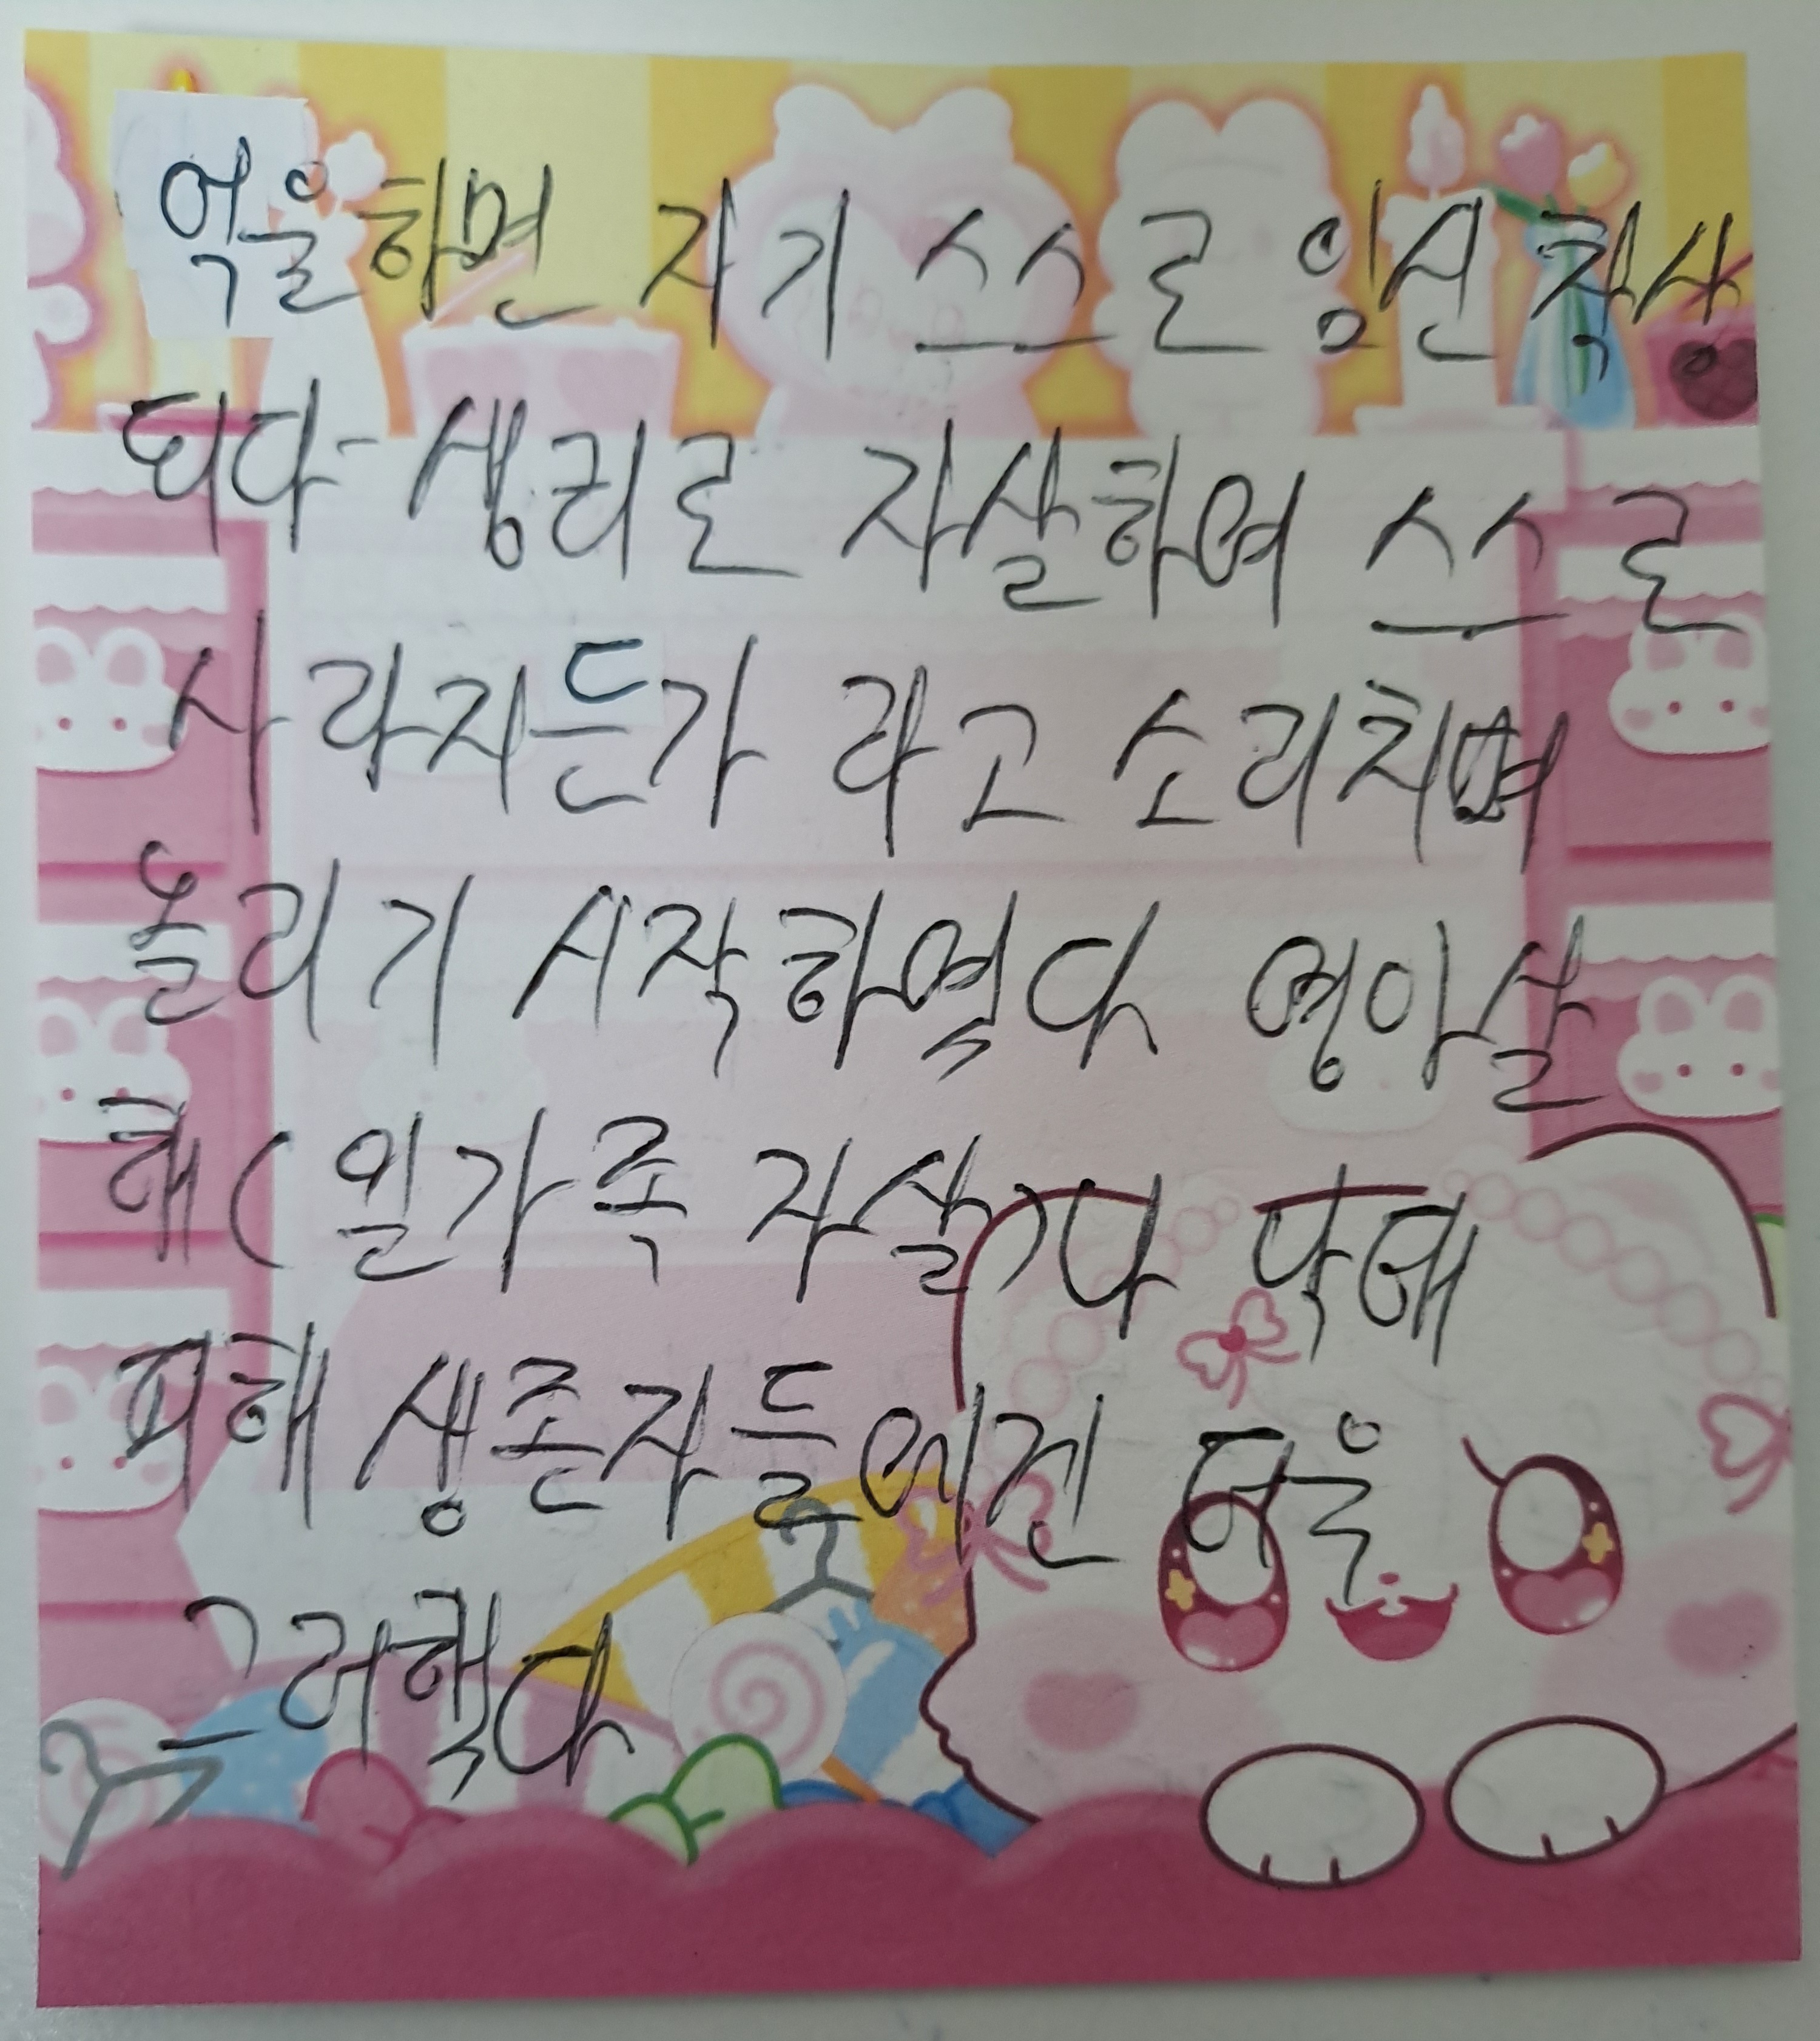 억울하면 자기 스스로 임신 착상
되다 생리로 자살하여 스스로
사라지든가 라고 소리치며
놀리기 시작하였다 영아살
해(일가족 자살)나 낙태
피해 생존자들에겐 더욱
그러했다